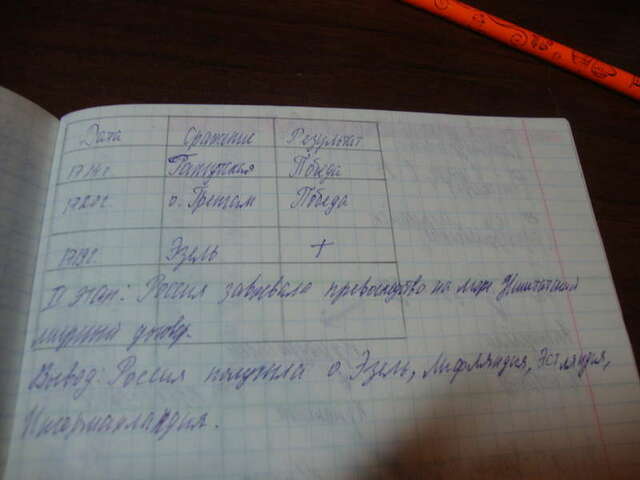 Дата Сражение Результат
1714г. Гангутская Победа
1720г. о. Гренгам Победа
1719г. Эзель +
II этап: Россия завоевала превосходство на море. Ништатский
мирный договор.
Вывод: Россия получила о. Эзель, Лифляндия, Эстляндия,
Ингерманландия.